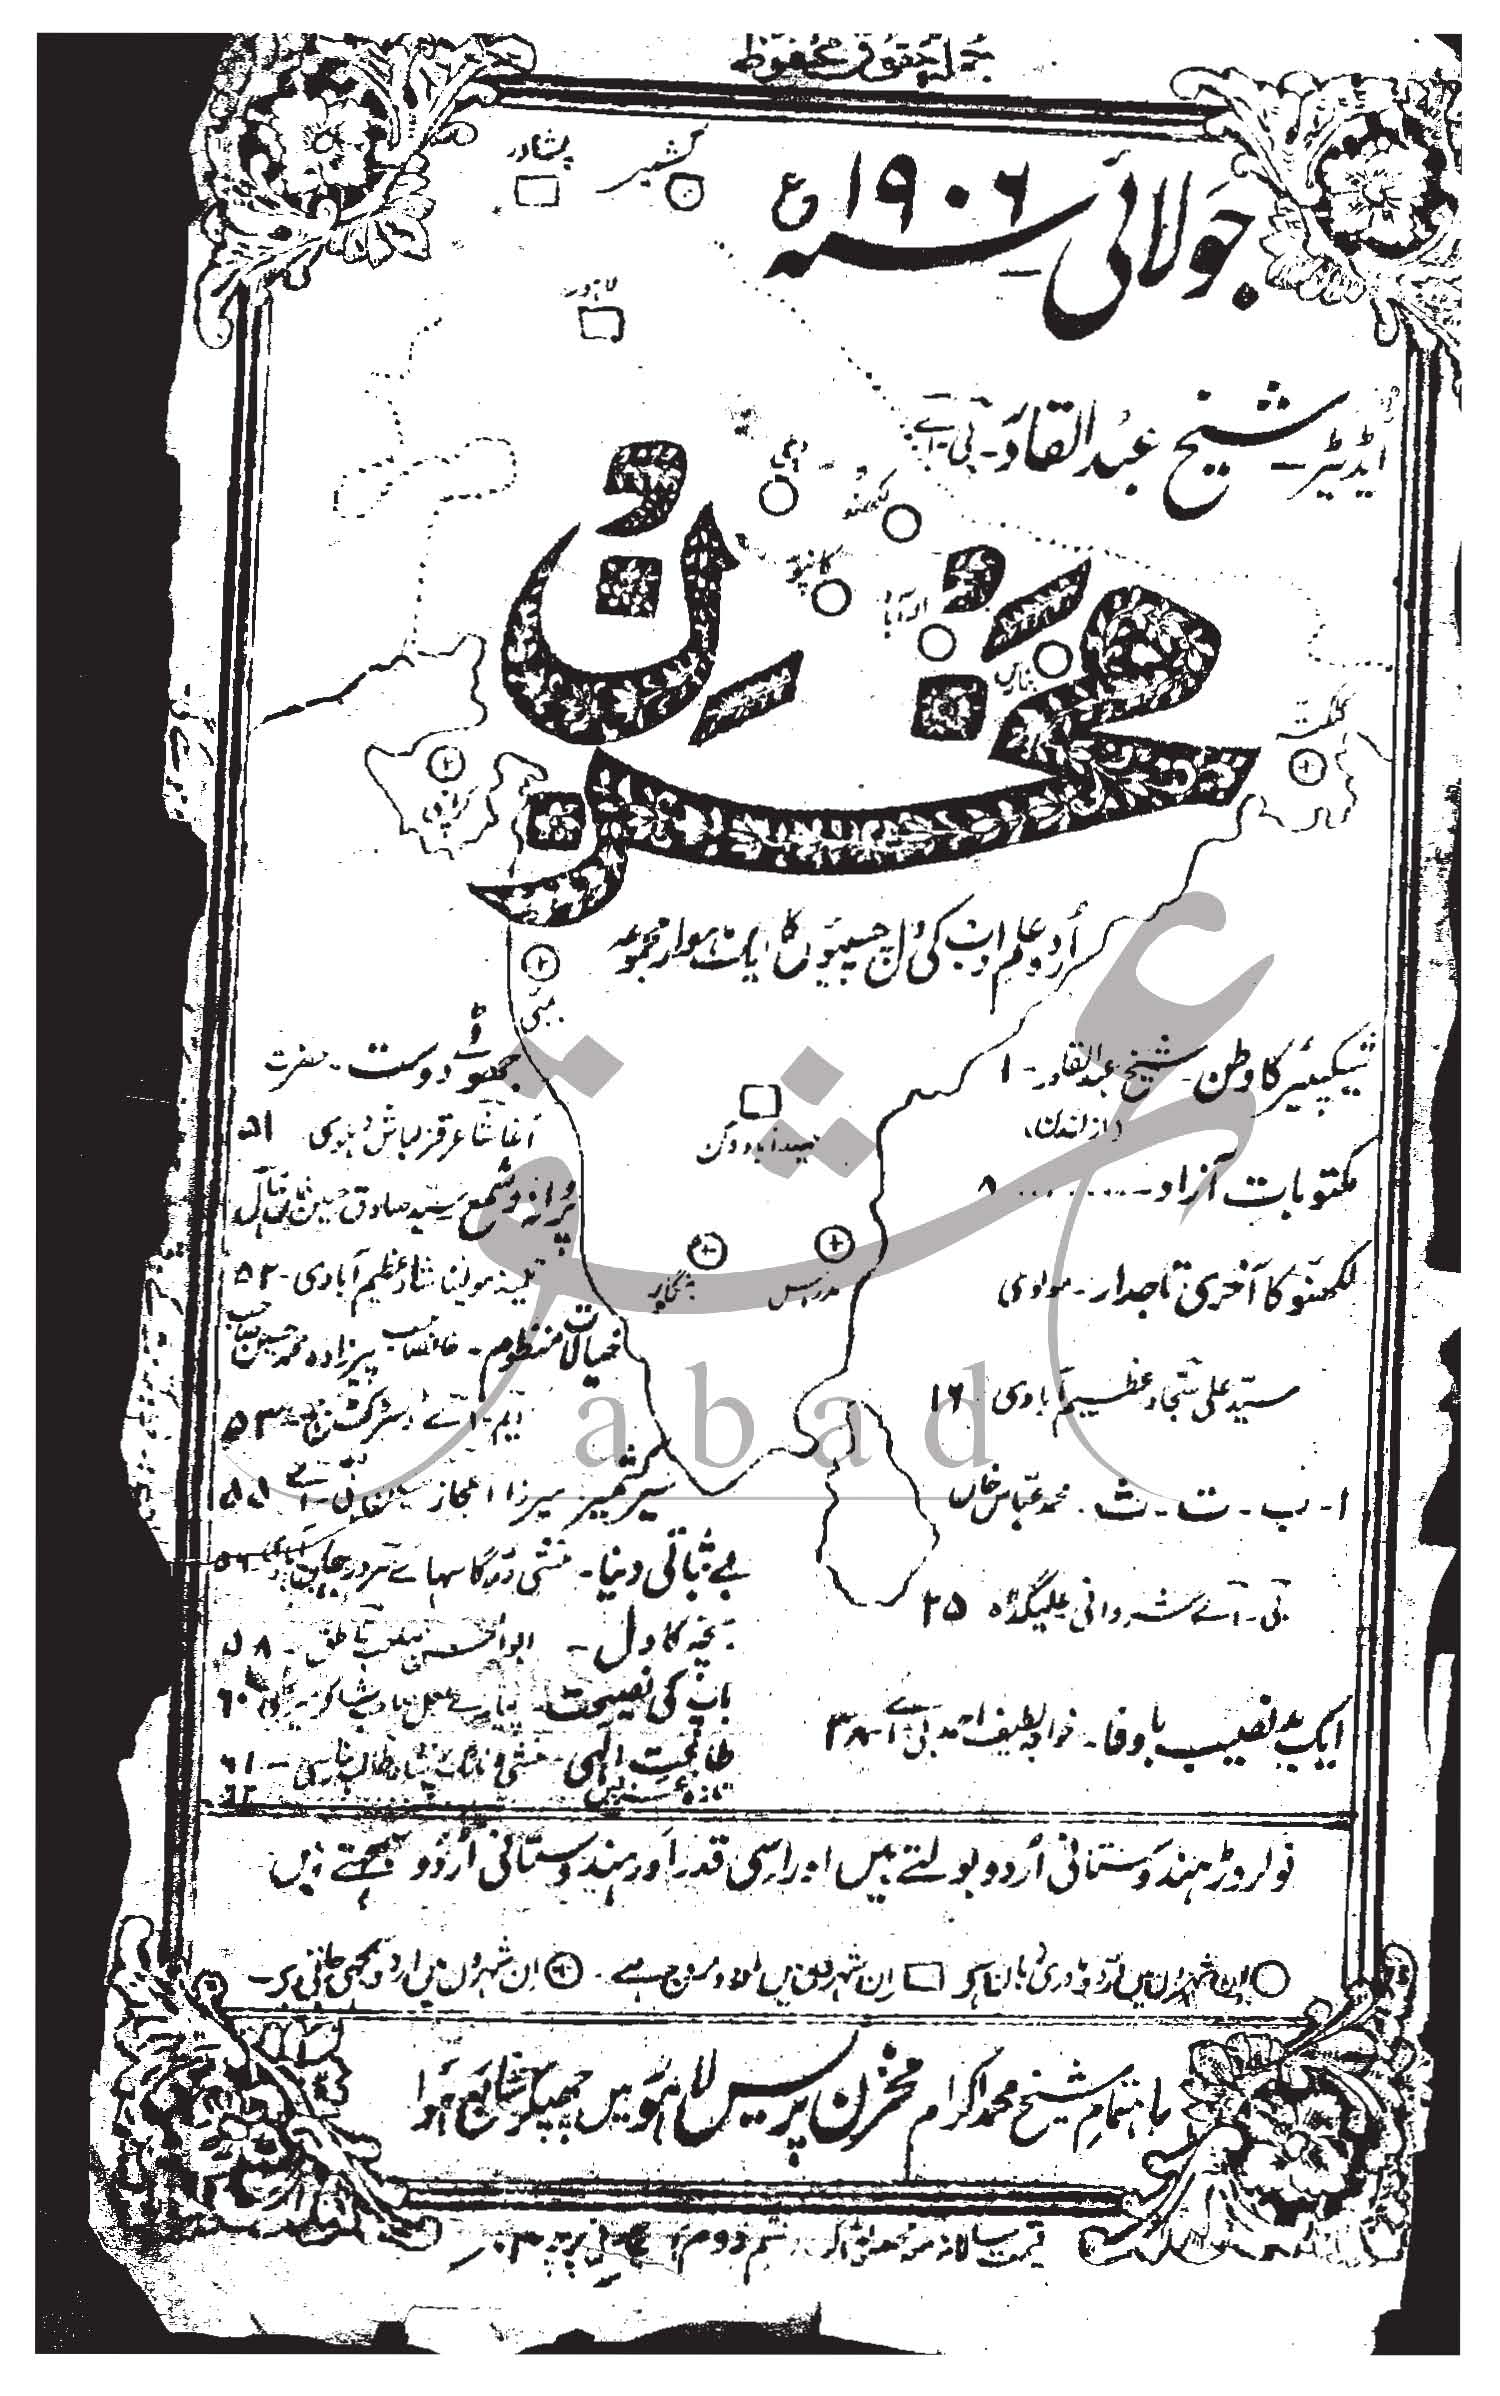 جملہ حقوق محفوظ
جولائی سنہ ۱۹۰۶ ع
پشاور
کشمیر
لاہور
ایڈیٹر - شیخ عبدالقادر - بی - اے
دہلی
لکھنؤ
کانپور
الہ آباد
بنارس
کلکتہ
مخزن
اُردو علم ادب کی دلچسپیوں کا ایک ماہوار مجموعہ
بمبئی
حیدرآباد دکن
بنگلور
مدراس
شیکسپئیر کا وطن - شیخ عبدالقادر - ۱
(از لندن)
مکتوبات آزاد - ........ ۸
لکھنؤ کا آخری تاجدار - مولوی
سیّد علی سجّاد عظیم آبادی ۱۶
ا - ب - ت - ث - محمد عبّاس خاں
بی - اے شروانی علیگڈھ ۲۵
ایک بدنصیب باوفا - خواجہ لطیف احمد بی اے - ۳۸
جھوٹے دوست - حضرت
آغا شاعر قزلباش دہلوی ۵۱
پروانہ و شمع سیّد صادق حسین
تلمیذ مولینا شاد عظیم آبادی - ۵۲
خیالات منظوم - خانصاحب پیرزادہ محمد حسین صاحب
ایم - اے ڈسٹرکٹ جج - ۵۳
سیر کشمیر میرزا اعجاز حسین بی - اے ۵۵
بے ثباتی دنیا - منشی درگا سہاے سرور جہان آبادی - ۵۶
بچہ کا دل - ابوالحسن ناطق - ۵۸
باپ کی نصیحت - شاکر - ۶۰
طالب بنارسی - ۶۱
تازہ غزلیں ۶۲
نو کروڑ ہندوستانی اُردو بولتے ہیں اور اسی قدر اَور ہندوستانی اُردو سمجھتے ہیں
ان شہروں میں اُردو مادری زبان ہے ان شہروں میں اردو مروج ہے - ان شہروں میں اردو سمجھی جاتی ہے -
باہتمام شیخ محمد اکرام مخزن پریس لاہور میں چھپکر شایع ہُوا
قیمت سالانہ مع محصول ڈاک قسم دوم
عشق
abad